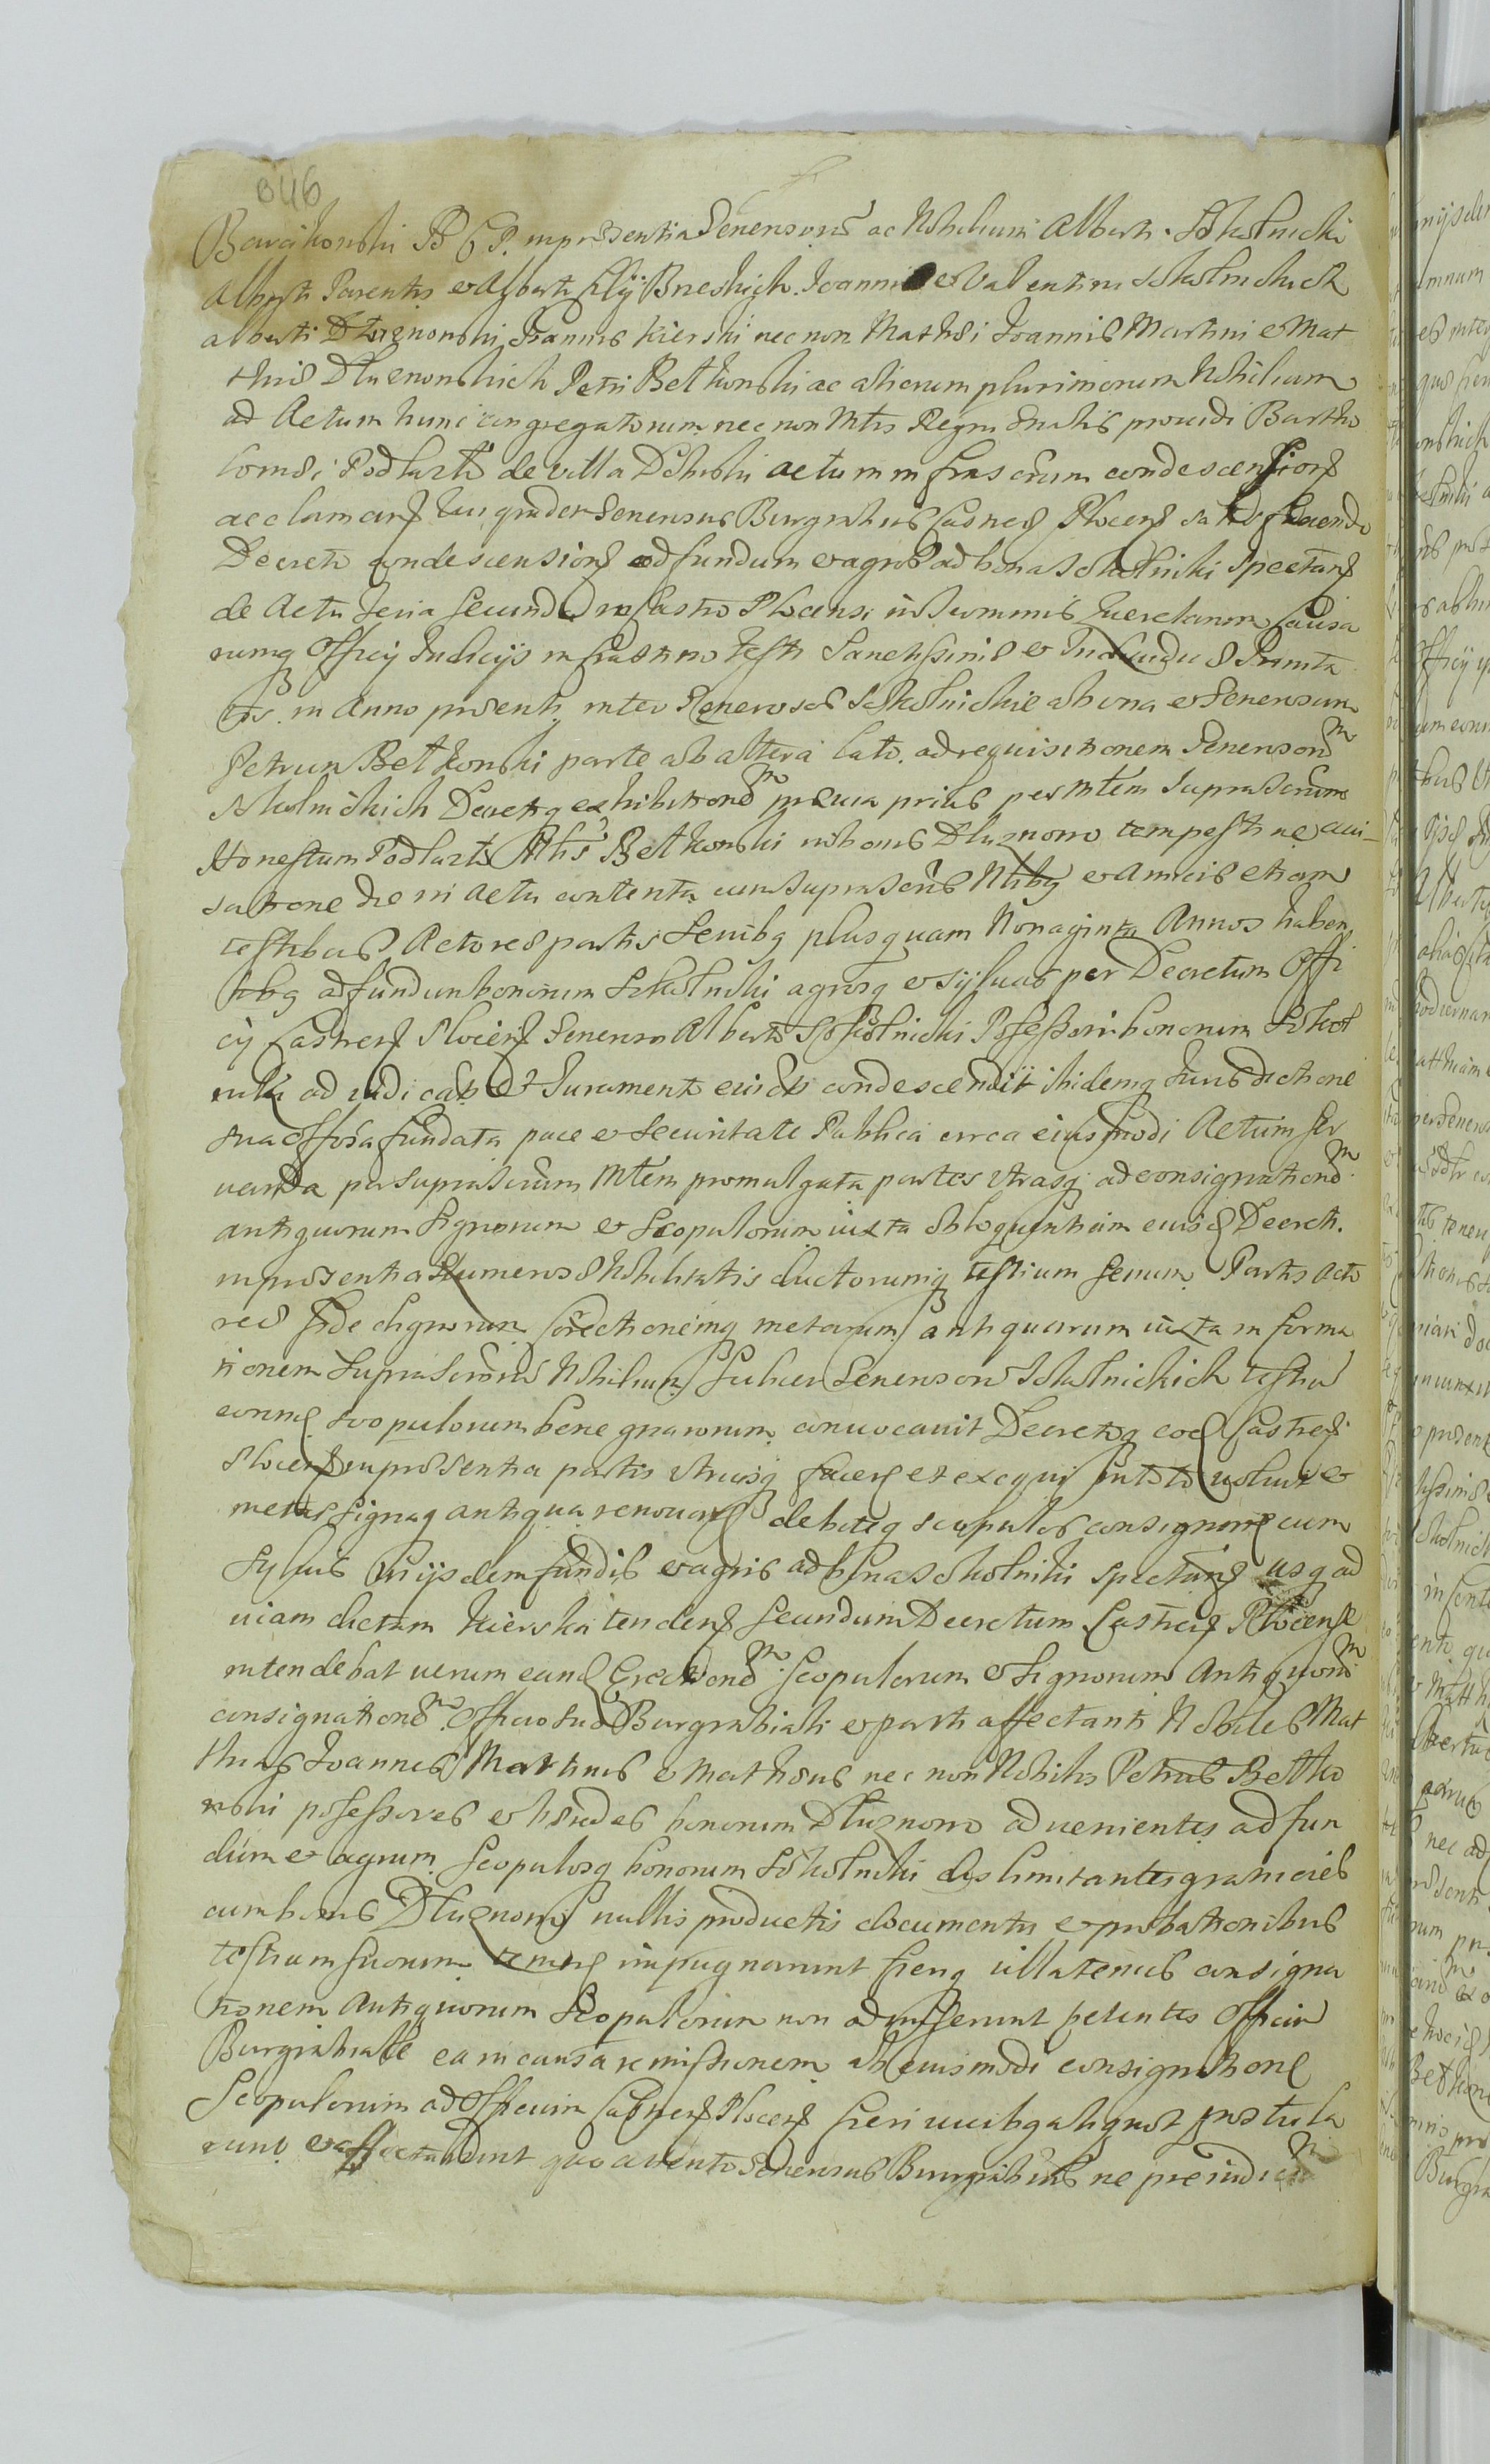 846
Barcikowski B G P. in praesentia Generosorũ ac Nobilium Alberti Sokolnicki
Alberti Parentis et Alberti filÿ Brzeskich Joannis et Valentini Sokolnickich
alberti Dłuznowski, Joannis Kierski nec non Mathaei Joannis Martini et Mat
thiae Dłuznowskich Petri Betkowski ac aliorum plurimorum Nobilium
ad Actum hunc congregatorum nec non Mtris Regni gnalis providi Bartho
lomaei Podlasze de villa Dębsk actum infrascrum condescension
acclaman Qui quidem Generosus Burgrabius Castren Plocen satisfaciendo
Decreto condescension ad fundum et agros ad bona Sokolniki spectan
de Actu feria secunda in Castro Plocensi in Terminis Querelarum Causa
rumq Officij Judicijs in crastino festi Sanctissimae et Individuae Trinita
tis in Anno praesenti inter Generosos Sokolnickie ab una et Generosum
Petrum Betkowski parte ab altera lato. ad requisitionem Generosorũ
Sokolnickich Decretq exhibitionem praevia prius per Mtem suprascrum
Honestum Podlasze Nbis Betkowski in bonis Dłuznowo tempestive avi-
satione die in Actu contenta cum suprascris Nbibq et Amicis etiam
testibus Actoreae partis Senibq plusquam Nonaginta Annos haben
tibq ad fundum bonorum Sokolniki agrosq et sylvas per Decretum Offi
cij Castren Plocen Generoso Alberto Sokolnicki Possessori bonorum Sokol
niki adiudicatos et Juramento evictos condescendit ibidemq Jurisdictione
sua Offosa fundata pace et securitate Publica circa eiusmodi Actum ser
vanda per suprascrum Mtem promulgata partes utrasq ad consignationem
antiquorum Signorum et Scopulorum iuxta obloquentiam eiusd Decreti.
in praesentia Numerosae Nobilitatis ductorumq testium senum Partis Acto
reae fide dignorum Corectionemq metarum antiquarum iuxta informa
tionem suprascrorũ Nobilium Gener Generosorũ Sokolnickich testiũ
eorund scopulorum bene gnarorum convocavit Decretoq eod Castren
Plocen in praesentia partis utriusq facere et exequi in toto voluit et
metas signaq antiqua renovare debitoq scopulos consignare cum
sylvis in ijsdem fundis et agris ad bona Sokolniki spectan usq ad
viam dictam Kierska tenden secundum Decretum Castren Plocense
intendebat verum eand Erectionem Scopulorum et Signorum Antiquorũ
consignationem Officio suo Burgrabiali et parti affectanti Nobiles Mat
thias Joannes Martinus et Mathaeus nec non Nobilis Petrus Betko
wski possessores et haeredes bonorum Dłuznowo advenientes ad fun
dum et agrum Scopulosq bonorum Sokolniki dislimitantes granicies
cum bonis Dłuznowo nullis productis documentis et probationibus
testium suorum temere impugnarunt fierq ullatenus consigna
tionem Antiquorum Scopulorum non admiserunt petentes Officiũ
Burgrabiale ea in causa remissionem ab eiusmodi consignatione
Scopulorum ad Officium Castren Plocen fieri
runt et affectaverunt quo attento Generosus Burgrabius ne praeiudiciũ